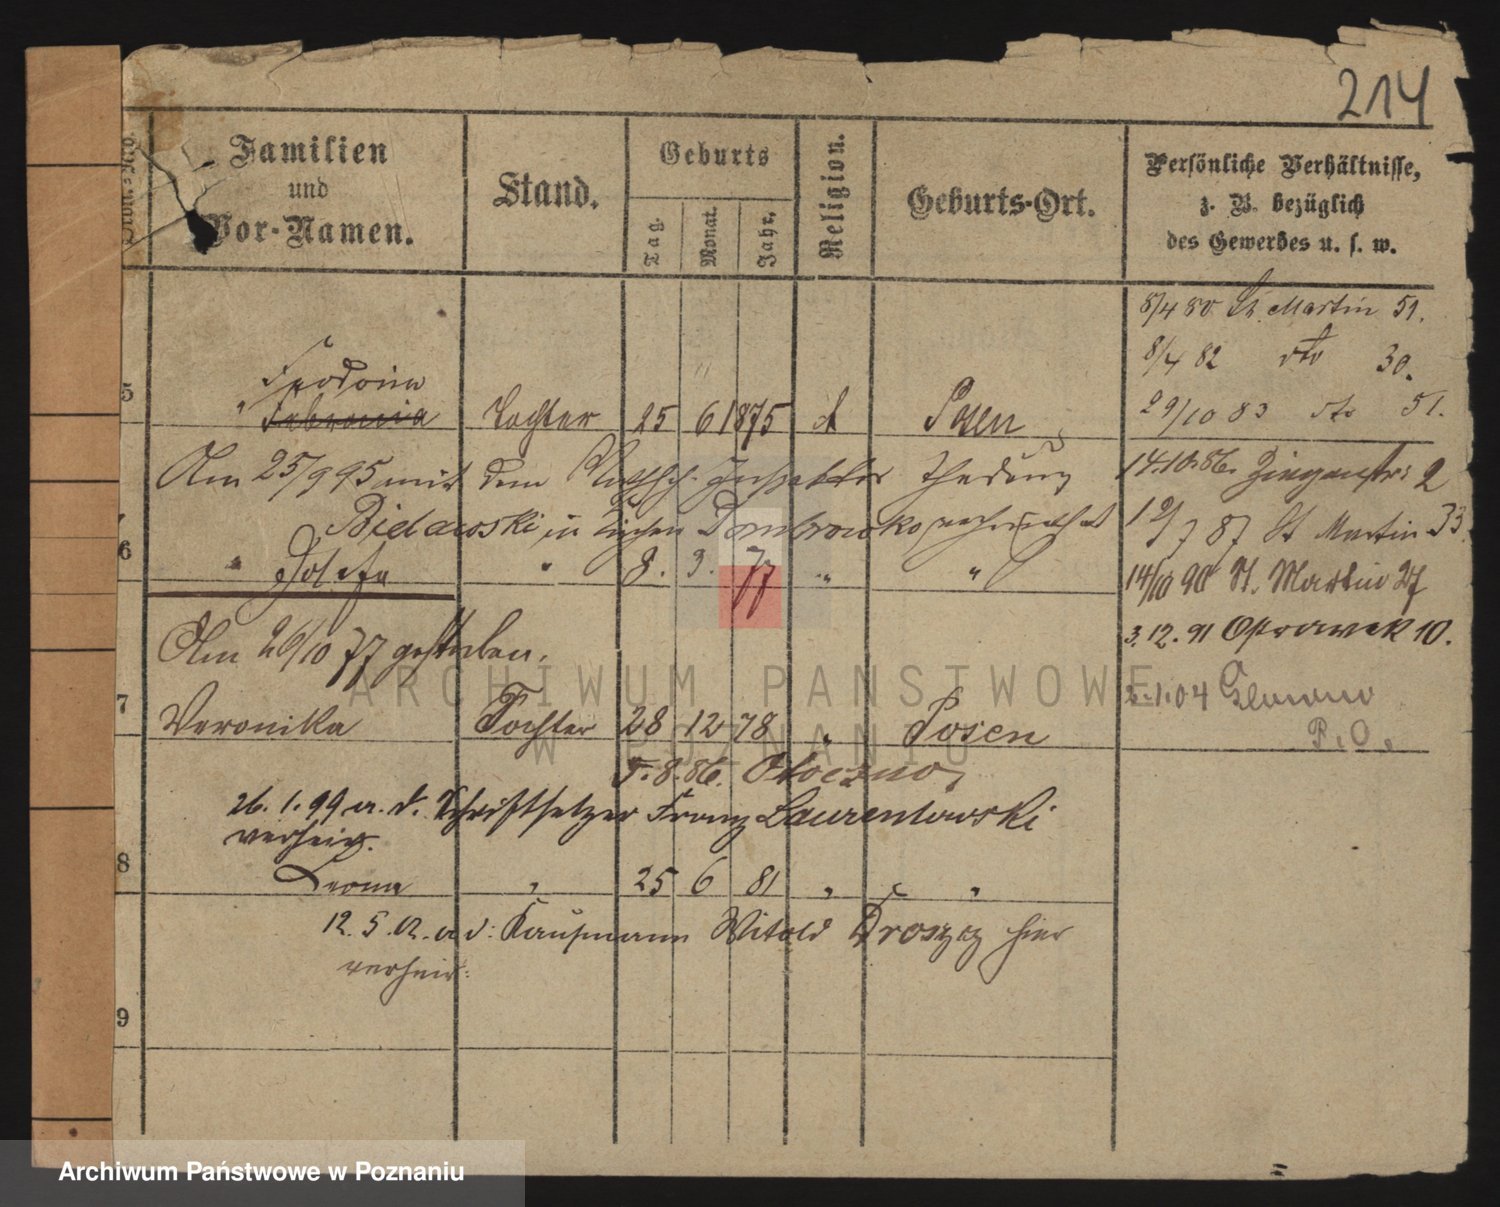 214
Ordn.-No.
Familien
und
Vor-Namen.
Stand.
Geburts
Tag.
Monat.
Jahr.
Religion.
Geburts-Ort.
Persönliche Verhältnisse,
z. B. bezüglich
des Gewerbes u. s. w.
8/4 80 St. Martin 51.
8/4 82 dto 30.
29/10 83 dto 51.
14.10.86. Ziegenstr: 2
19/7 87 St Martin 33.
14/10 90 St. Martin 27
3.12.91 10.
2.1.04
P. O.
5 Feodoria
" Febronia Tochter 25 6 1875 k Posen
Am 25/9 95 mit dem Inspektor
Bielawski in Dombrowko verheirathet
6 " Josefa " 8. 3. 77 " "
Am 26/10 77 gestorben.
7 Veronika Tochter 28 12 78 " Posen
7.8.86. Otoczno,
26.1.99 a. d. Schriftsetzer Franz Laurentowski
verheir.
8 Leona " 25 6 81 " "
12.5.02. a d: Kaufmann Witold hier
verheir:
9
ARCHIWUM PAŃSTWOWE
W POZNANIU
Archiwum Państwowe w Poznaniu